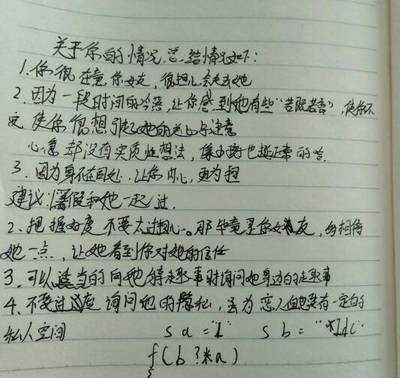 关于你的情况,总结情况如下:
1.你很在意你女友,很担心会失去她
2.因为一段时间的冷落,让你感到她有些"若即若离",使你不
使你很想引起她的关心与注意
心意却没有实质性想法,
3.因为身不在同处,让你内心更为担
建议:暑假和她一起过.
2、把握好度 不要太过担心。那毕竟是你女友,多相信
她一点,让她看到你对她的信任
3.可以适当的向她讲趣事时询问她身边的趣事
4.不要过度询问她的隐私,因为恋人间也要有一定的
私人空间 s a = "1" s b =
f(b ? a)